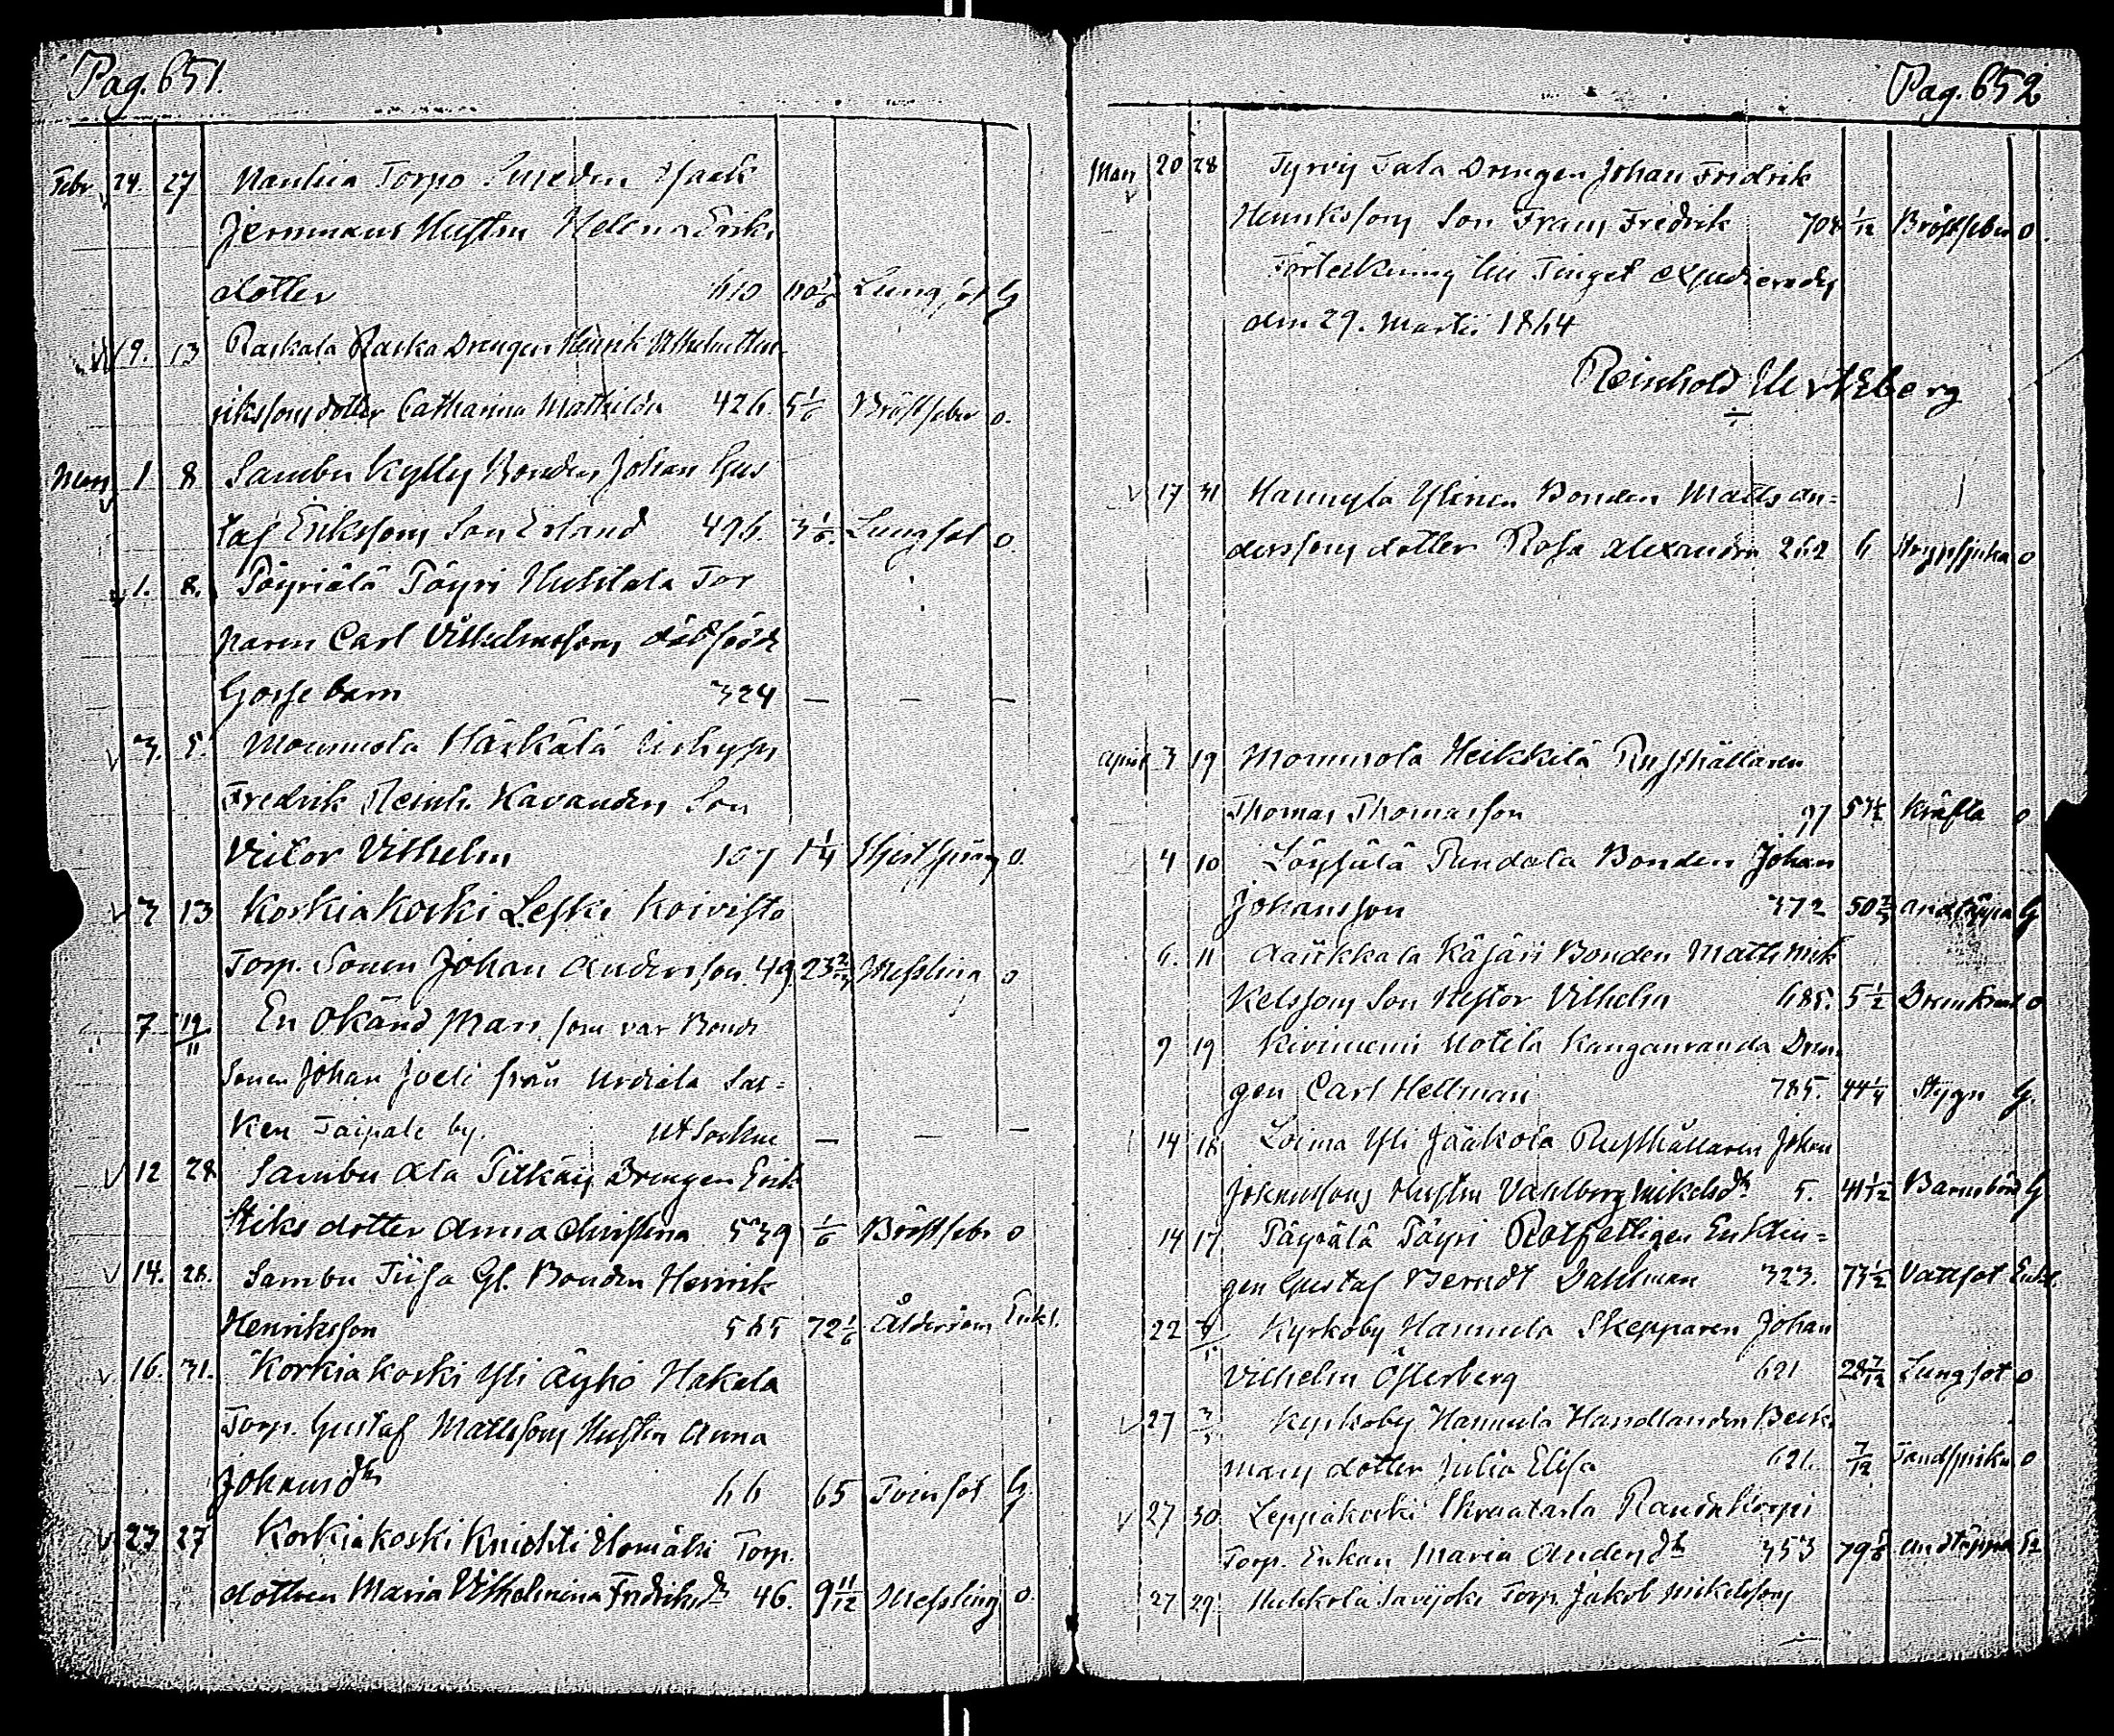 Pag. 651.
Febr 24. 27 Torpo Smeden Isack
Jermmans Hustru Helena Eriks
dotter 610 Lungsot G
9. 13 Raskala Raska Drengen Henrik Vilhelm Hen
rikssons dotter Catharina Mathilda 426. 5 1/6 Bröstfeber o.
Mars 1 8 Sambu Kylly Bonden Johan Gus
taf Erikssons Son Erland 496. 3 1/6. Lungsot o.
1. 8. Töyriälä Töyri Tor
paren Carl Vilhelmssons dödfödt
Gossebarn 324 — — —
3. 5. Mommola Härkälä
Fredrik Reinh. Kavanders Son
Victor Vilhelm 107 1 1/4 o.
3 13 Korkiakoski Leski Koivisto
Torp. Sonen Johan Andersson. 49. 23 Messling o
7 19/11 En Okänd Man som var Bonde
Sonen Johan Joeli från Urdiala Soc=
ken Taipale by. Ut Socknen — — —
12 28 Sambu Ala Pitkäis Drengen Erik
Eriks dotter Anna Christina 539 1/6 Bröstfebr o
14. 28. Sambu Gl. Bonden Henrik
Henriksson 565 72 1/6 Ålderdom Enkl.
16. 31. Korkiakoski Yli Äyhö Hakala
Torp. Gustaf Mattssons Hustru Anna
Johansdtr 66 65 Tvinsot G
23 27 Korkiakoski Knichti Torp.
dottren Maria Vilhelmina Fredriksdr 46. 9 11/12 Messling o.
Pag. 652
Mars 20 28 Tyrvis Tala Drengen Johan Fredrik
Henrikssons Son Frans Fredrik 708 1/12 Bröstfeber o.
Förteckning till Tinget expedierades
den 29. Martii 1864
Reinhold Hertzberg
17 31 Hannula Ylinen Bonden Matts An=
derssons dotter Rosa Alexandra 262 6 Strypsjuka o
April 3 19 Mommola Heikkilä Rusthållaren
Thomas Thomasson 97 57 1/2 Kräfta o
4 10 Löysälä Pundola Bonden Johan
Johansson 372 50 Andtäppa G
6. 11 Käjäri Bonden Matts Mik
kelssons Son Nestor Vilhelm 685. 5 1/2 o
9 19 Kiviniemi Uotila Kanganranda Dren
gen Carl Hellman 785. 44 1/4 Stygn G.
14 18 Loima Yli Jaakola Rusthållaren Johan
Johanssons Hustru Vahlborg Mikelsdtr 5. 41 1/12 Barnsbörd G
14 17 Töyrälä Töyri Rotfattigen Enklin=
gen Gustaf Berndt Dahlman 323. 73 1/2 Vattsot Enkl.
22 Kyrkoby Hannula Skepparen Johan
Vilhelm Österberg 621 28 7/12 Lungsot o
27 Kyrkoby Hannula Handlanden Beck
mans dotter Julia Elisa 621. 7/12 Tandsprickn o
27 30 Leppäkoski Skraatarla
Torp. Enkan Maria Andersdtr 353 79 Andtäppa
27 29. Huhkola Savijoki Torp. Jakob Mikelssons